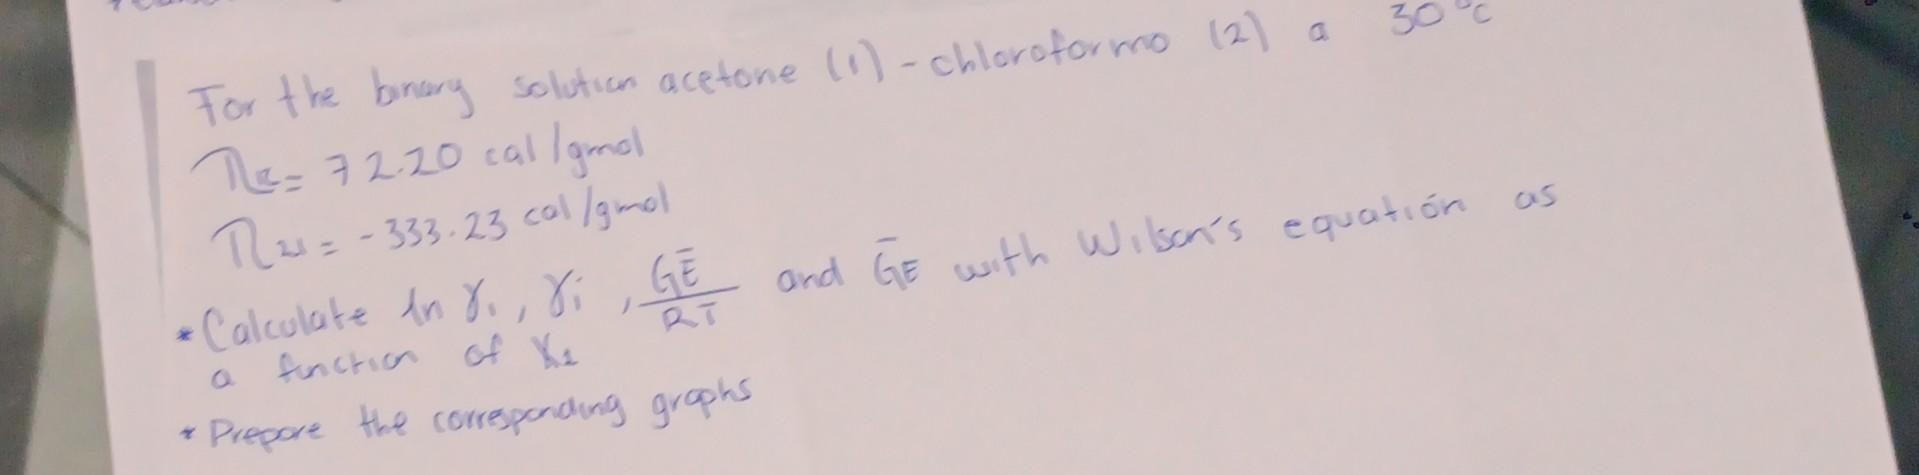 For the binary solution acetone (1) - chloroformo (2) a 30°C
= 72.20 cal/gmol
= -333.23 cal/gmol
* Calculate ln γi, γi, GE/RT and GE with Wilson's equatión as
a function of X1
* Prepare the corresponding graphs